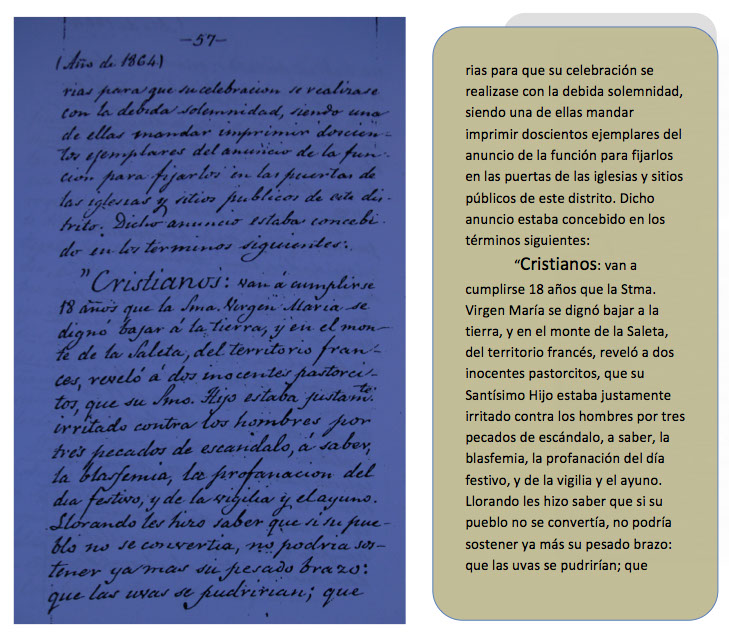 —57—
(Año de 1864)
rias para que su celebracion se realizase
con la debida solemnidad, siendo una
de ellas mandar imprimir doscien-
tos ejemplares del anuncio de la fun-
cion para fijarlos en las puertas de
las iglesias y sitios publicos de este dis-
trito. Dicho anuncio estaba concebi-
do en los terminos siguientes:
"Cristianos: van á cumplirse
18 años que la Sma. Virgen Maria se
dignó bajar á la tierra, y en el mon-
te de la Saleta, del territorio fran-
ces, reveló á dos inocentes pastorci-
tos, que su Smo. Hijo estaba justamte.
irritado contra los hombres por
tres pecados de escandalo, á saber,
la blasfemia, la profanacion del
dia festivo, y de la vigilia y el ayuno.
Llorando les hizo saber que si su pue-
blo no se convertia, no podria sos-
tener ya mas su pesado brazo:
que las uvas se pudririan; que
rias para que su celebración se
realizase con la debida solemnidad,
siendo una de ellas mandar
imprimir doscientos ejemplares del
anuncio de la función para fijarlos
en las puertas de las iglesias y sitios
públicos de este distrito. Dicho
anuncio estaba concebido en los
términos siguientes:
"Cristianos: van a
cumplirse 18 años que la Stma.
Virgen María se dignó bajar a la
tierra, y en el monte de la Saleta,
del territorio francés, reveló a dos
inocentes pastorcitos, que su
Santísimo Hijo estaba justamente
irritado contra los hombres por tres
pecados de escándalo, a saber, la
blasfemia, la profanación del día
festivo, y de la vigilia y el ayuno.
Llorando les hizo saber que si su
pueblo no se convertía, no podría
sostener ya más su pesado brazo:
que las uvas se pudrirían; que